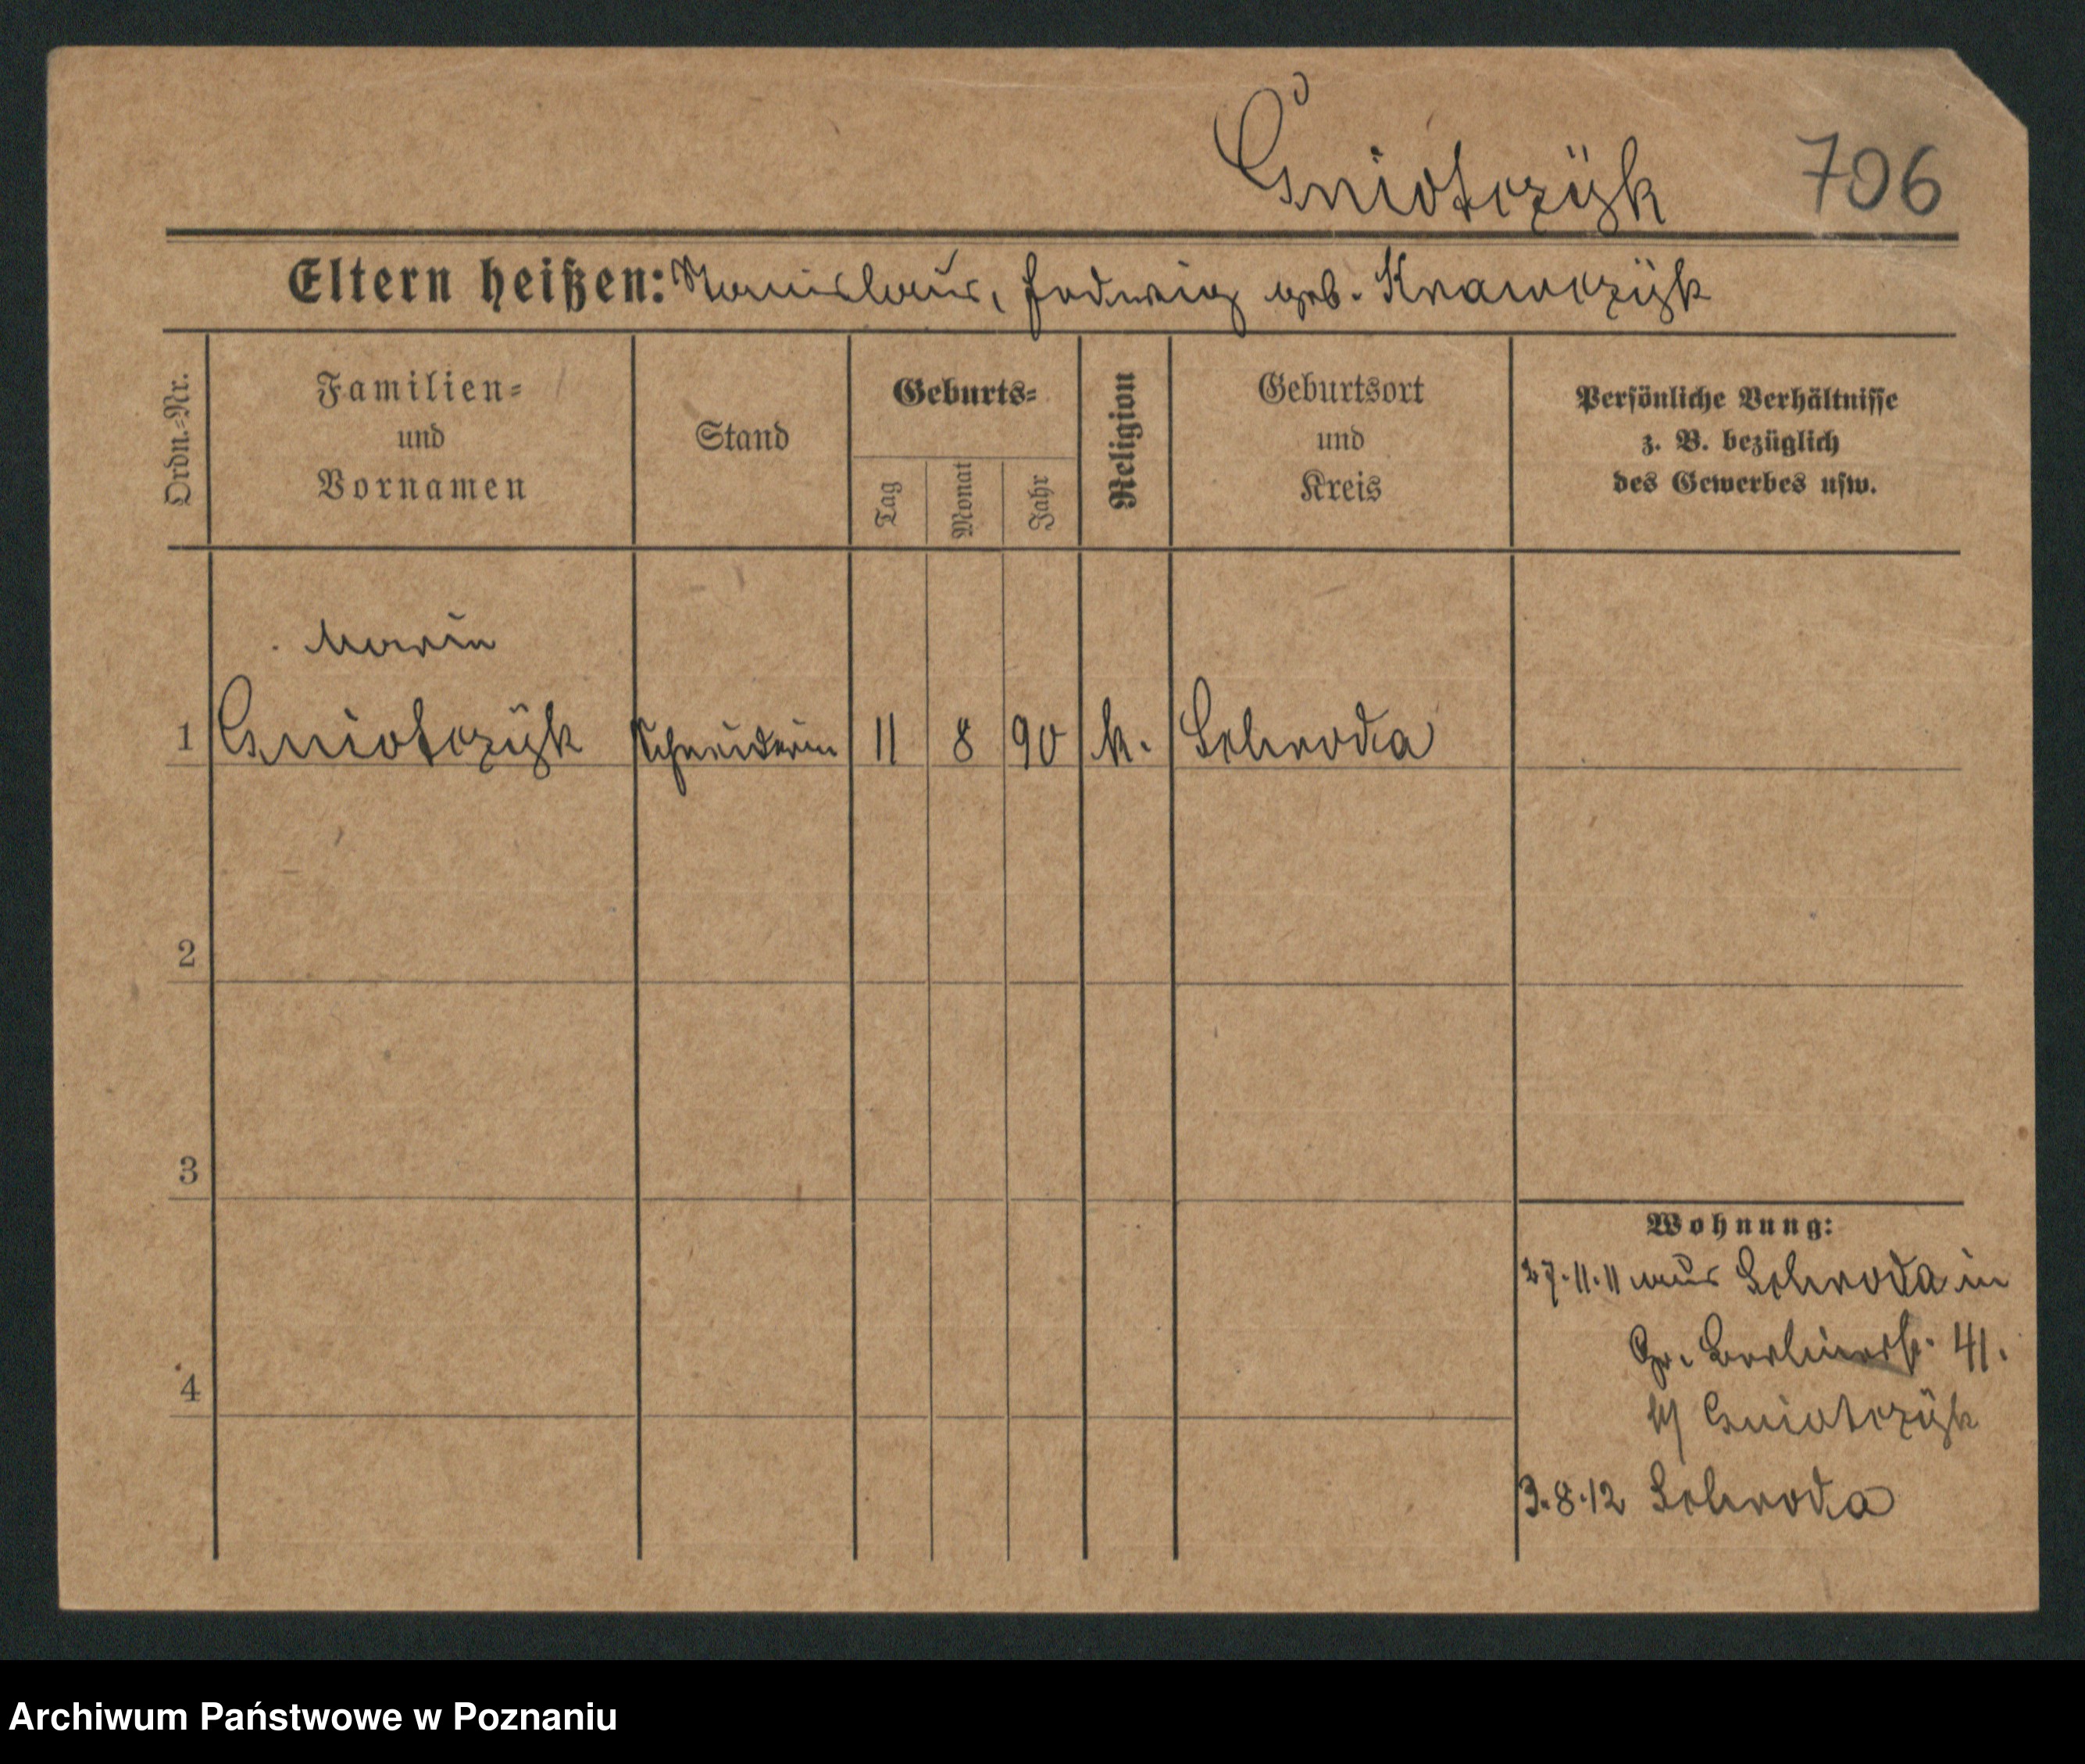 Gniotczÿk 706
Eltern heißen: Stanislaus, Hedwig geb. Krawczÿk
Ordn.-Nr.
Familien-
und
Vornamen
Stand
Geburts-
Tag
Monat
Jahr
Religion
Geburtsort
und
Kreis
Persönliche Verhältnisse
z. B. bezüglich
des Gewerbes usw.
Marie
1 Gniotczÿk Schneiderin 11 8 90 k. Schroda
2
3
4
Wohnung:
27.11.11 aus Schroda in
Gr. Berlinerstr. 41.
b/ Gniotczÿk
3.8.12 Schroda
Archiwum Państwowe w Poznaniu